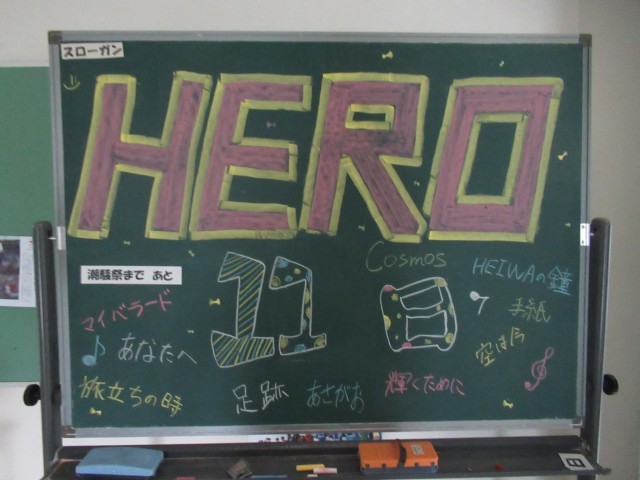 スローガン
HERO
潮騒祭まで あと
11日
Cosmos
HEIWAの鐘
マイバラード
手紙
あなたへ
空は今
旅立ちの時
足跡
あさがお
輝くために
日